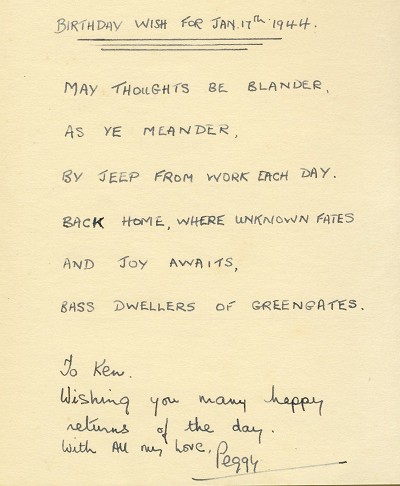 BIRTHDAY WISH FOR JAN. 17th 1944.
MAY THOUGHTS BE BLANDER,
AS YE MEANDER,
BY JEEP FROM WORK EACH DAY.
BACK HOME, WHERE UNKNOWN FATES
AND JOY AWAITS,
BASS DWELLERS OF GREENGATES.
To Ken.
Wishing you many happy
returns of the day.
With All my Love,
Peggy